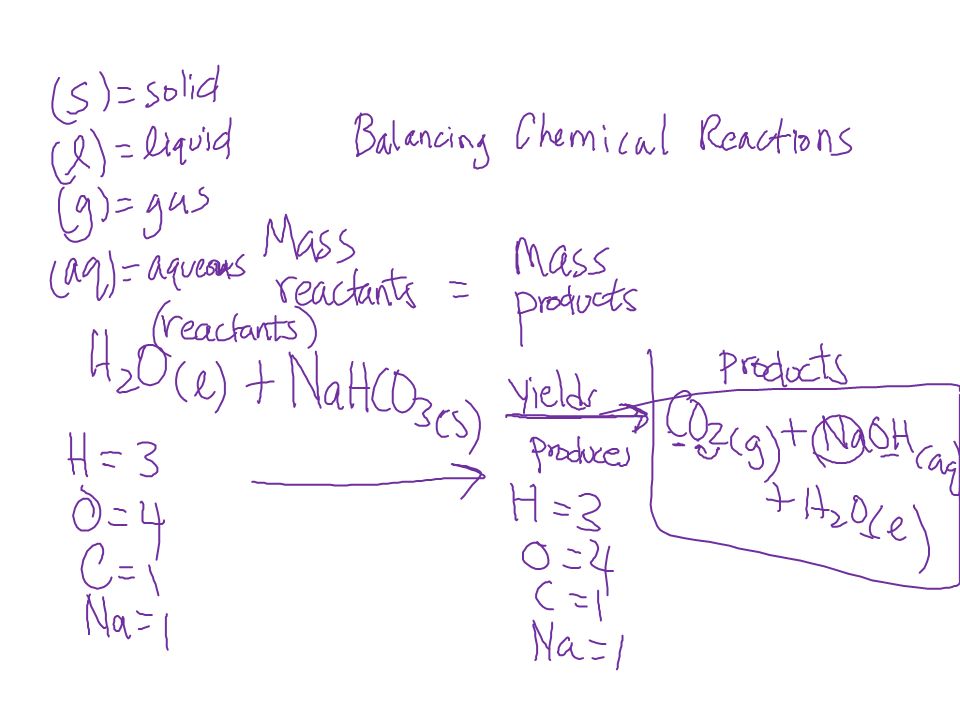 (s) = solid
(l) = liquid
(g) = gas
(aq) = aqueous
Balancing Chemical Reactions
Mass reactants = Mass products
(reactants)
H₂O(l) + NaHCO₃(s)
Yields
produces
Products
CO₂(g) + NaOH(aq)
+ H₂O(l)
H = 3
O = 4
C = 1
Na = 1
H = 3
O = 4
C = 1
Na = 1